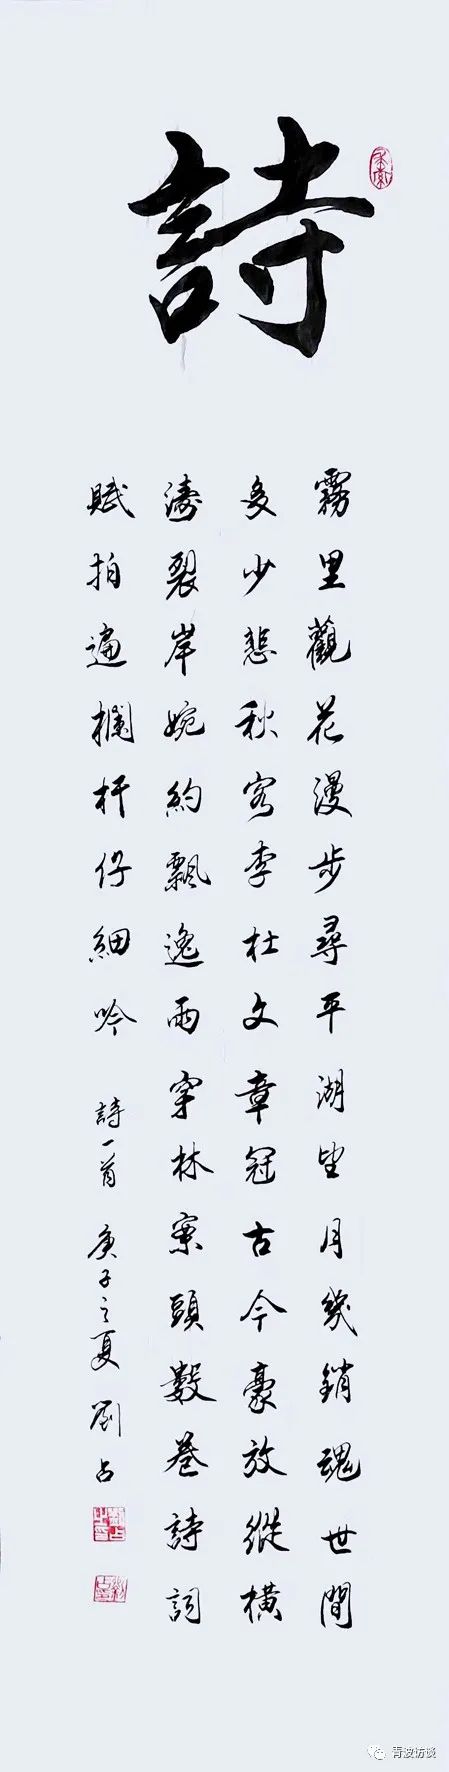 詩
霧里觀花漫步尋平湖望月幾銷魂世間
多少悲秋客李杜文章冠古今豪放縱橫
濤裂岸婉約飄逸雨穿林案頭數卷詩詞
賦拍遍欄杆仔細吟
詩一首 庚子之夏 劉占
青波访谈